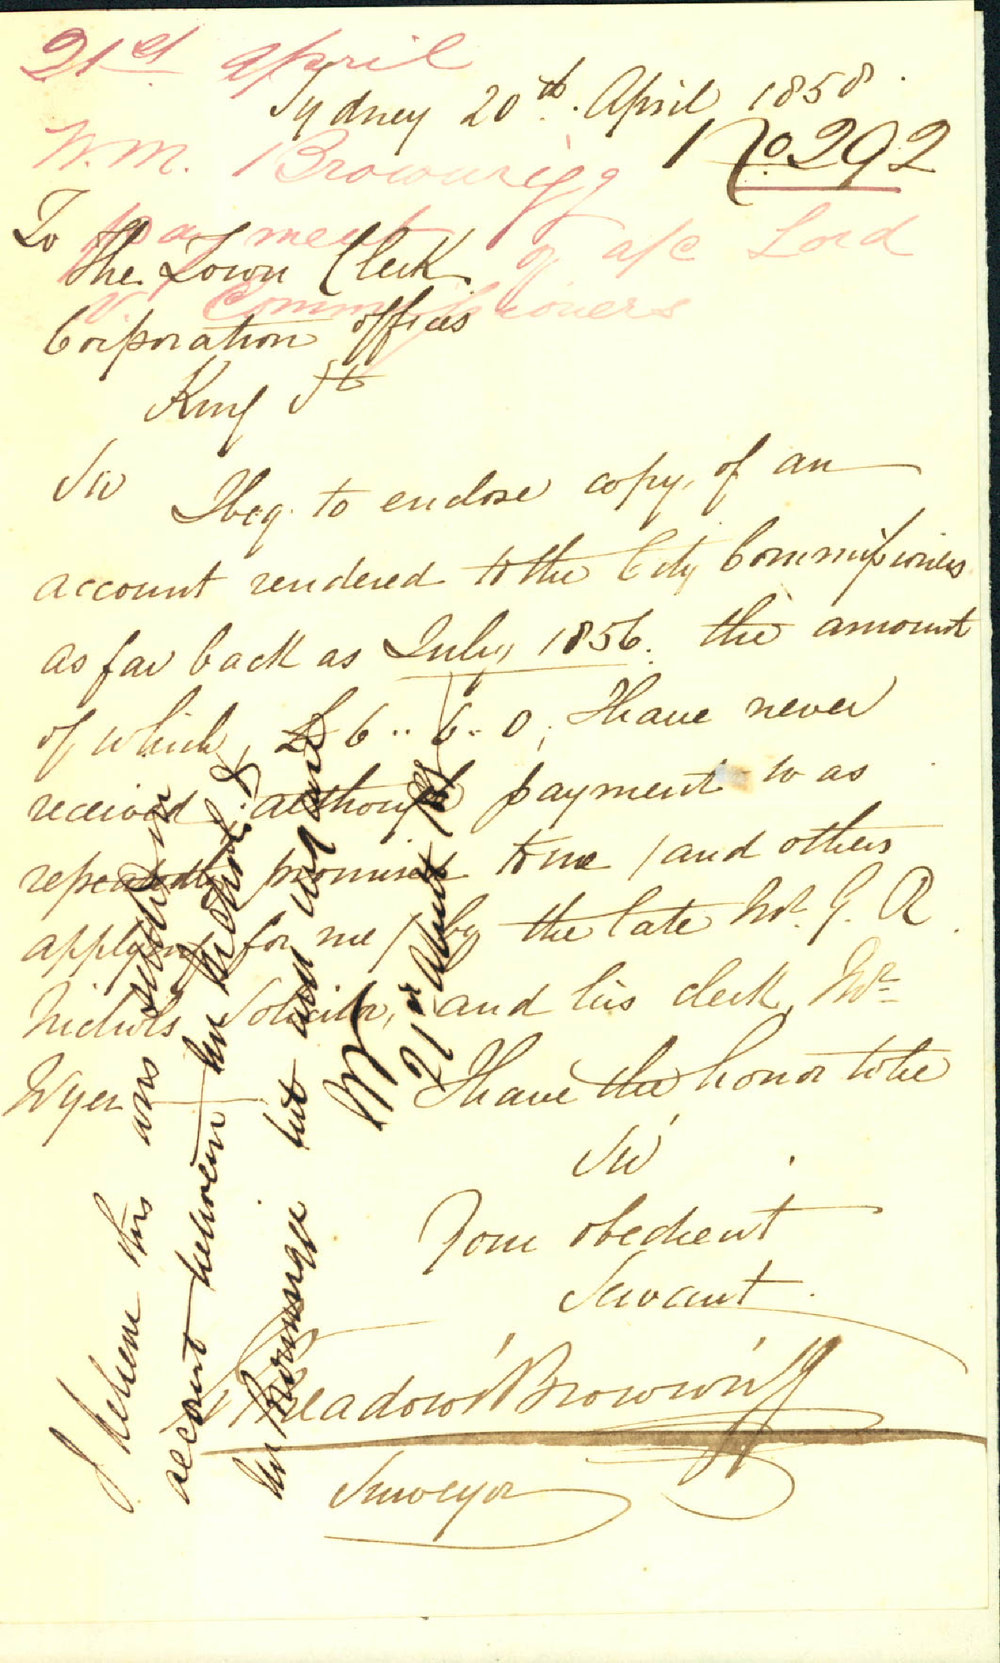 21st April
Sydney 20th. April 1858.
W.M. Brownrigg
No 292
payment of a/c Lord
v. Commissioners
To
The Town Clerk
Corporation offices
King St
Sir
I beg to enclose copy, of an
account rendered to the City Commissioners
as far back as July, 1856. the amount
of which, £6..6..0, I have never
received although payment was
repeatedly promised to me / and others
applying for me / by the late Mr. G. R.
Nichols Solicitor, and his clerk, Mr
Wyer
I have the honor to be
Sir
Your obedient
Servant
Meadows Brownrigg
Surveyor
I believe this was settled in
account between Mr Nichols &
Mr Brownrigg but am not sure
21st